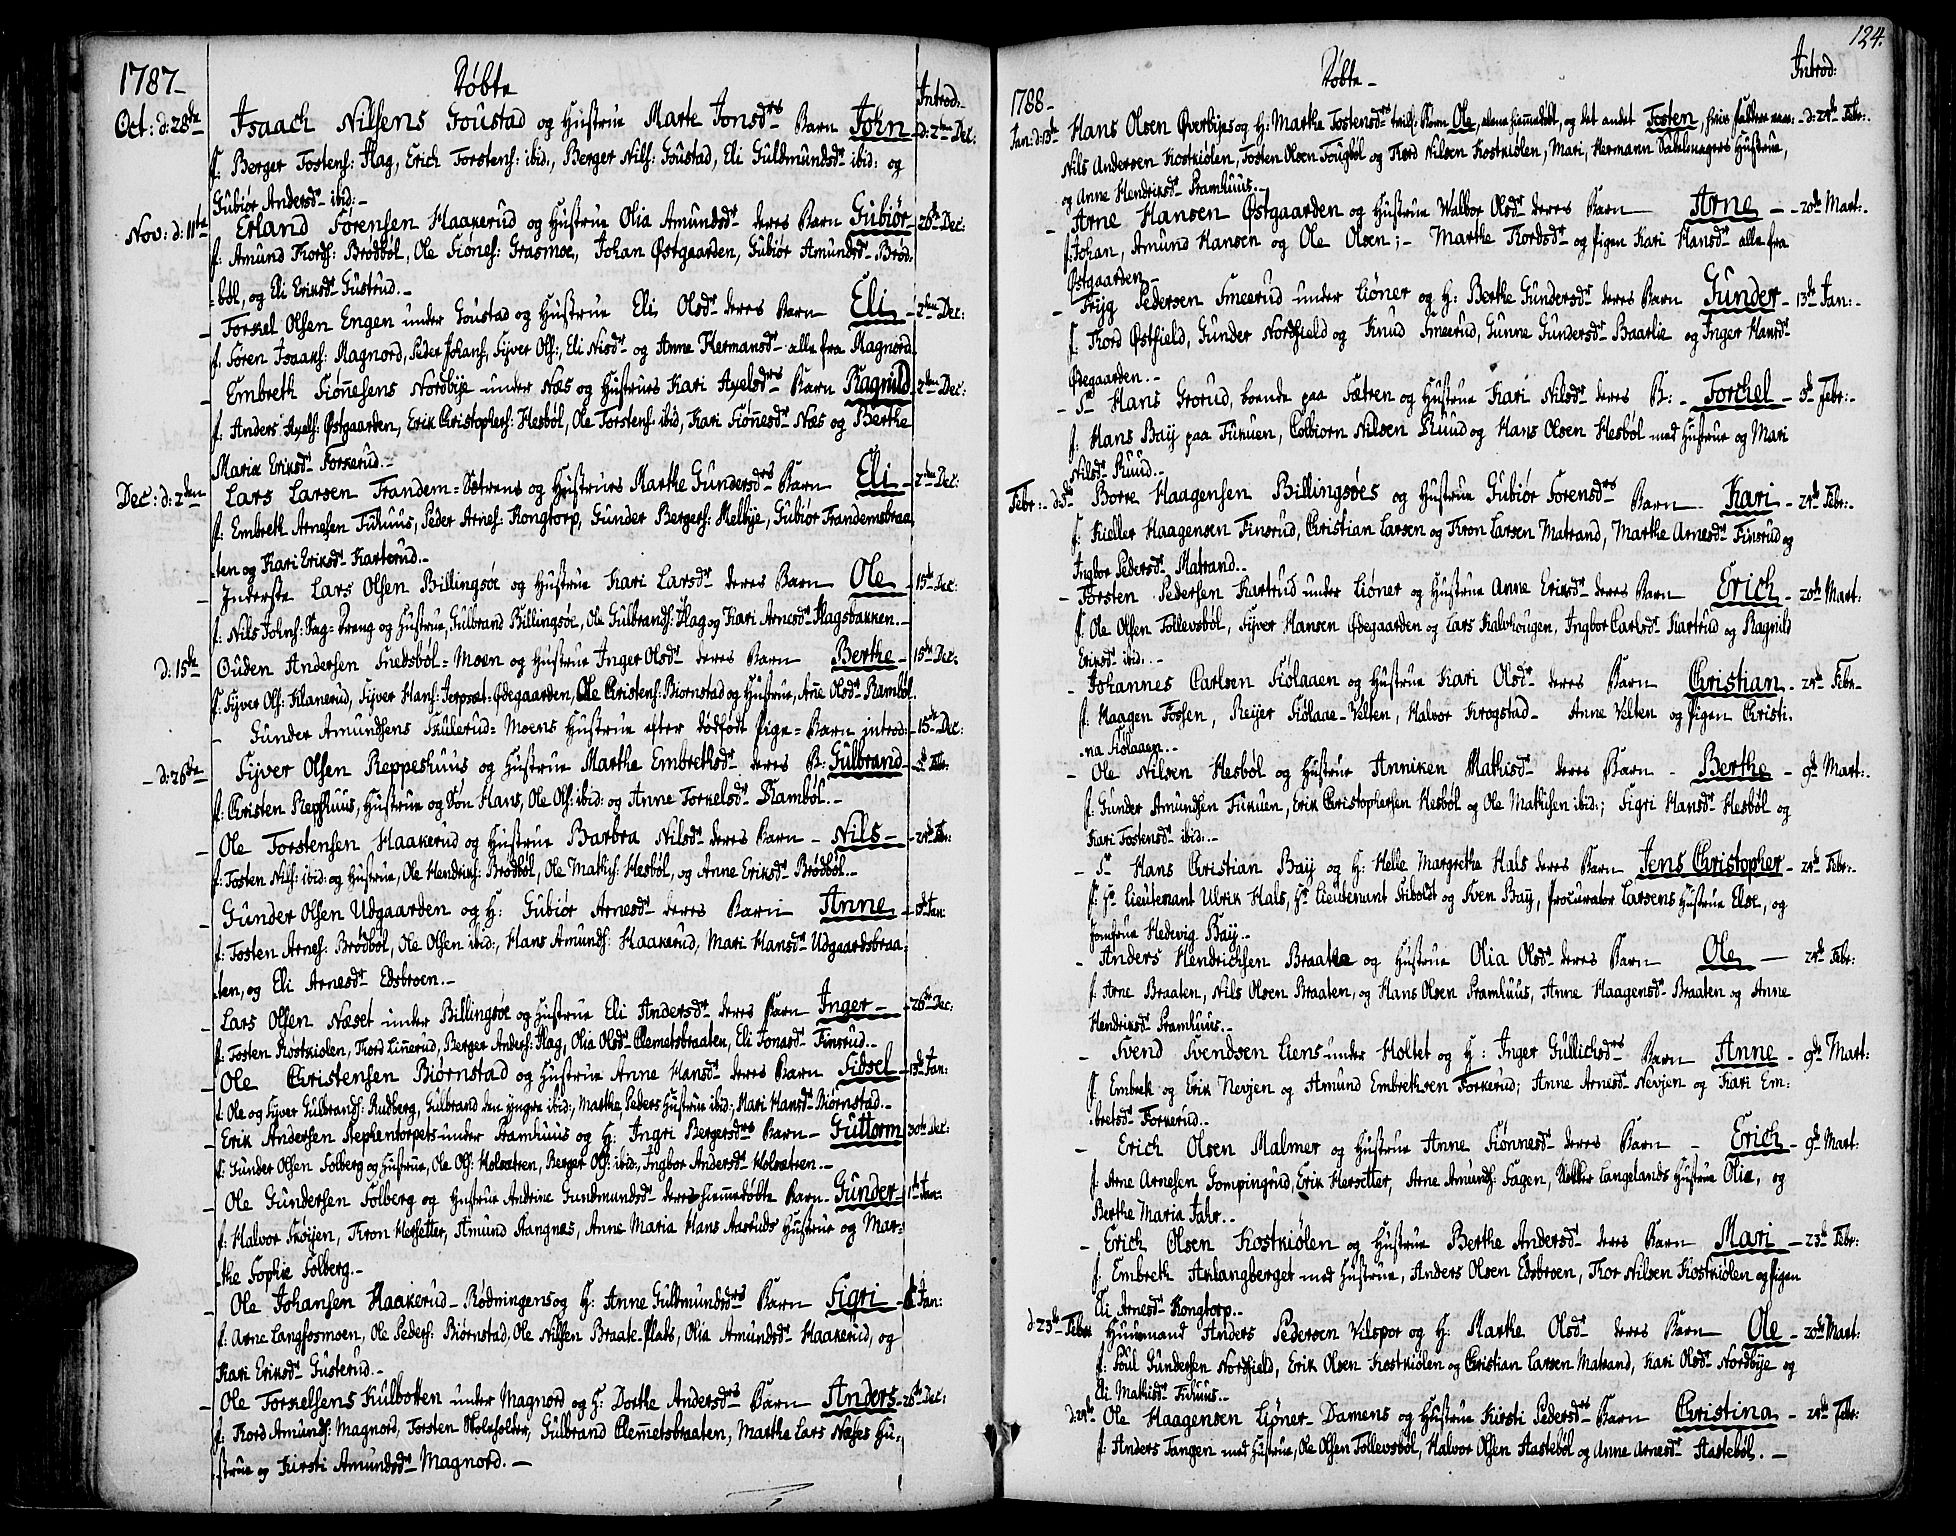 1787
Døbte
Introd:
Oct: d: 28de Isaach Nilsens Goustad og Hustrue Marte Jonsdrs Barn John d: 2den Dec:
f: Berger Tostens: Flag, Erich Torstens: ibid:, Berger Nils: Goustad, Eli Guldmundsdr ibid: og
Gubiør Andersdr ibid:
Nov: d: 11te Erland Sørensen Haakerud og Hustrue Olia Amundsdr deres Barn Gubiør 26de Dec:
f: Amund Tords: Brødbøl, Ole Siønes: Grasmoe, Johan Østgaarden, Gubiør Amundsdr Brød:
bøl, og Eli Eriksdr Gustrud.
Torkel Olsen Engen under Goustad og Hustrue Eli Olsdr deres Barn Eli 2den Dec:
f: Søren Isaaks: Magnord, Peder Johans:, Syver Ols:, Eli Nisdr og Anne Hermansdr alle fra Magnord.
Embreth Siønnesens Nordbye under Næs og Hustrues Kari Axelsdrs Barn Ragnild 2den Dec:
f: Anders Axels: Østgaarden, Erik Christophers: Hesbøl, Ole Torstens: ibid, Kari Siønnesdr Næs og Berthe
Maria Eriksdr Torkerud.
Dec: d: 2den Lars Larsen Trandem-Sætrens og Hustrues Marthe Gundersdrs Barn Eli 2den Dec:
f: Embreth Arnesen Fuhuus, Peder Arnes: Kongtorp, Gunder Bergers: Melbye, Gubiør Trandemsbraa
ten og Kari Eriksdr Karterud.
Inderste Lars Olsen Billingsøe og Hustrue Kari Larsdr deres Barn Ole 15de Dec:
f: Nils Johns: Sag-Dreng og Hustrue, Gulbrand Billingsøe, Ole Gulbrands: Flag og Kari Arnesdr Flagsbakken.
d: 15de Ouden Andersen Snedsbøl-Moen og Hustrue Inger Olsdr deres Barn Berthe 15de Dec:
f: Syver Ols: Klanerud, Syver Hans: Jerpset-Ødegaarden, Ole Christens: Biørnstad og Hustrue, Anne Olsdr Ramböl.
Gunder Amundsens Skullerud-Moens Hustrue efter dødfødt Pige-Barn introd: 15de Dec:
d: 26de Syver Olsen Reppeshuus og Hustrue Marthe Embrethsdr deres B: Gulbrand Febr:
f: Christen Repshuus, Hustrue og Søn Hans, Ole Ols: ibid: og Anne Torkelsdr Ramböl.
Ole Torstensen Haakerud og Hustrue Barbra Nilsdr deres Barn Nils 24de Febr:
f: Tosten Nils: ibid: og Hustrue, Ole Hendriks: Brødbøl, Ole Mathis: Hesbøl, og Anne Eriksdr Brødbøl.
Gunder Olsen Udgaarden og H: Gubiør Arnesdr deres Barn Anne 13de Jan:
f: Tosten Arnes: Brødbøl, Ole Olsen ibid:, Hans Amunds: Haakerud, Mari Hansdr Udgaardsbraa:
ten, og Eli Arnesdr Edsbroen.
Lars Olsen Næset under Billingsøe og Hustrue Eli Andersdr deres Barn Inger 26de Dec:
f: Tosten Kostkiølen, Tord Linnerud, Berger Anders: Flag, Olia Olsdr Clemetsbraaten, Eli Jonasdr Finsrud.
Ole Christensen Biørnstad og Hustrue Anne Hansdr deres Barn Sidsel 13de Jan:
f: Ole og Syver Gulbrands: Rudberg, Gulbrand den yngre ibid:, Marthe Peders Hustrue ibid:, Mari Hansdr Biørnstad.
Erik Andersen Rephentorpets under Framhuus og H: Ingri Bergersdrs Barn Guttorm 30de Dec:
f: Gunder Olsen Solberg og Hustrue, Ole Ols: Holsætren, Berger Ols: ibid:, Ingbor Andersdr Holsætren.
Ole Gundersen Solberg og Hustrue Andrine Gundmundsdr deres hiemmedøbte Barn Gunder 1te Jan:
f: Halvor Skøyen, Tron Hersetter, Amund Stangnæs, Anne Maria Hans Aaseruds Hustrue og Mar:
the Sophie Solberg.
Ole Johansen Haakerud-Rødningens og H: Anne Guldmundsdrs Barn Sigri Jan:
f: Arne Langfosmoen, Ole Peders: Biørnstad, Ole Nilsen Braate-Plads, Olia Amundsdr Haakerud, og
Kari Eriksdr Gusterud.
Ole Torkelsens Kulbotten under Magnord og H: Dorthe Andersdrs Barn Anders 26de Dec:
f: Tord Amunds: Magnord, Torsten Skoleholder, Gulbrand Clemmetsbraaten, Marthe Lars Næses Hu:
strue og Kirsti Amundsdr Magnord.
124.
1788
Døbte
Introd:
Jan: d: 13de Hans Olsen Øverbyes og H: Marthe Tostensdrs tvill: Børn Ole, alene hiemmedøbt, og det andet Tosten, hvis faddere vare: d: 24de Febr:
Nils Andersen Kostkiølen, Tosten Olsen Fougbøl og Tord Nilsen Kostkiølen, Mari, Hermann Sadelmagers Hustrue,
og Anne Hendriksdr Framhuus.
Arne Hansen Østgaarden og Hustrue Walbor Olsdr deres Barn Arne 20de Mart:
f: Johan, Amund Hansen og Ole Olsen; Marthe Tordsdr og Pigen Kari Hansdr alle fra
Østgaarden.
Tryg Pedersen Smeerud under Liøner og H: Berthe Gundersdr deres Barn Gunder 13de Jan:
f: Tord Østfield, Gunder Nordfield og Knud Smeerud, Gunne Gundersdr Baarlie og Inger Hansdr
Ødegaarden.
Sr Hans Grorud, boende paa Sætren og Hustrue Kari Nilsdr deres B: Torchel 3de Febr:
f: Hans Bay paa Fukuen, Colbiorn Nilsen Ruud og Hans Olsen Hesbøl med Hustrue og Mari
Nilsdr Ruud.
Febr: d: 3de Borre Haagensen Billingsøes og Hustrue Gubiør Sorensdrs Barn Kari 24de Febr:
f: Kieller Haagensen Finsrud, Christian Larsen og Tron Larsen Matrand, Marthe Arnesdr Finsrud og
Ingbor Pedersdr Matrand.
Torsten Pedersen Kartrud under Liøner og Hustrue Anne Eriksdr deres Barn Erich 20de Mart:
f: Ole Olsen Tollevsbøl, Syver Hansen Ødegaarden og Lars Kalvhougen, Ingbor Carlsdr Kartrud og Ragnild
Eriksdr ibid:
Johannes Carlsen Siølaaen og Hustrue Kari Olsdr deres Barn Christian 24de Febr
f: Haagen Fossen, Reyer Siölaae-Velten, Halvor Krogstad Anne Velten og Pigen Christi:
na Siølaaen.
Ole Nilsen Hesbøl og Hustrue Anniken Mathisdr deres Barn Berthe 9de Mart:
f: Gunder Amundsen Fukuen, Erik Christophersen Hesbøl og Ole Mathisen ibid:; Sigri Hansdr Hesbøl og
Kari Tostensdr ibid:
Sr Hans Christian Bay og H: Helle Margrethe Hals deres Barn Jens Christopher 24de Febr:
f: Hr Lieutenant Ulrik Hals, Hr Lieutenant Stiboldt og Sven Bay, Procurator Larsens Hustrue Else, og
Jomfrue Hedevig Bay.
Anders Hendrichsen Braaten og Hustrue Olia Olsdr deres Barn Ole 24de Febr:
f: Arne Braaten, Nils Olsen Braaten, og Hans Olsen Framhuus, Anne Haagensdr Braaten og Anne
Hendriksdr Framhuus.
Svend Svendsen Liens under Holtet og H: Inger Gullichsdrs Barn Anne 9de Mart:
f: Embrek og Erik Nevjen og Amund Embreksen Torkerud; Anne Arnesdr Nevjen og Kari Em:
bretsdr Torkerud.
Erich Olsen Malmer og Hustrue Anne Siønnesdr deres Barn Erich 9de Mart:
f: Arne Arnesen Gompingrud, Erik Hersetter, Arne Amunds: Sagen, Klokker Langelands Hustrue Olia, og
Berthe Maria Fahr.
Erich Olsen Kostkiølen og Hustrue Berthe Andersdr deres Barn Mari 23de Febr:
f: Embreth Aklangberget med Hustrue, Anders Olsen Edsbroen, Thor Nilsen Kostkiølen og Pigen
Eli Arnesdr Kongtorp.
d: 23de Febr: Huusmand Anders Pedersen Vilspor og H: Marthe Olsdr deres Barn Ole 20de Mart:
f: Poul Gundersen Nordfield, Erik Olsen Kostkiølen og Christian Larsen Matrand, Kari Olsdr Nordbye og
Eli Mathisdr Fuhuus.
d: 24de Ole Haagensen Liøner-Damens og Hustrue Kirsti Pedersdrs Barn Christina 24de Febr:
f: Anders Tangen med Hustrue, Ole Olsen Tollevsbøl, Halvor Olsen Aastebøl og Anne Arnesdr Aastebøl.